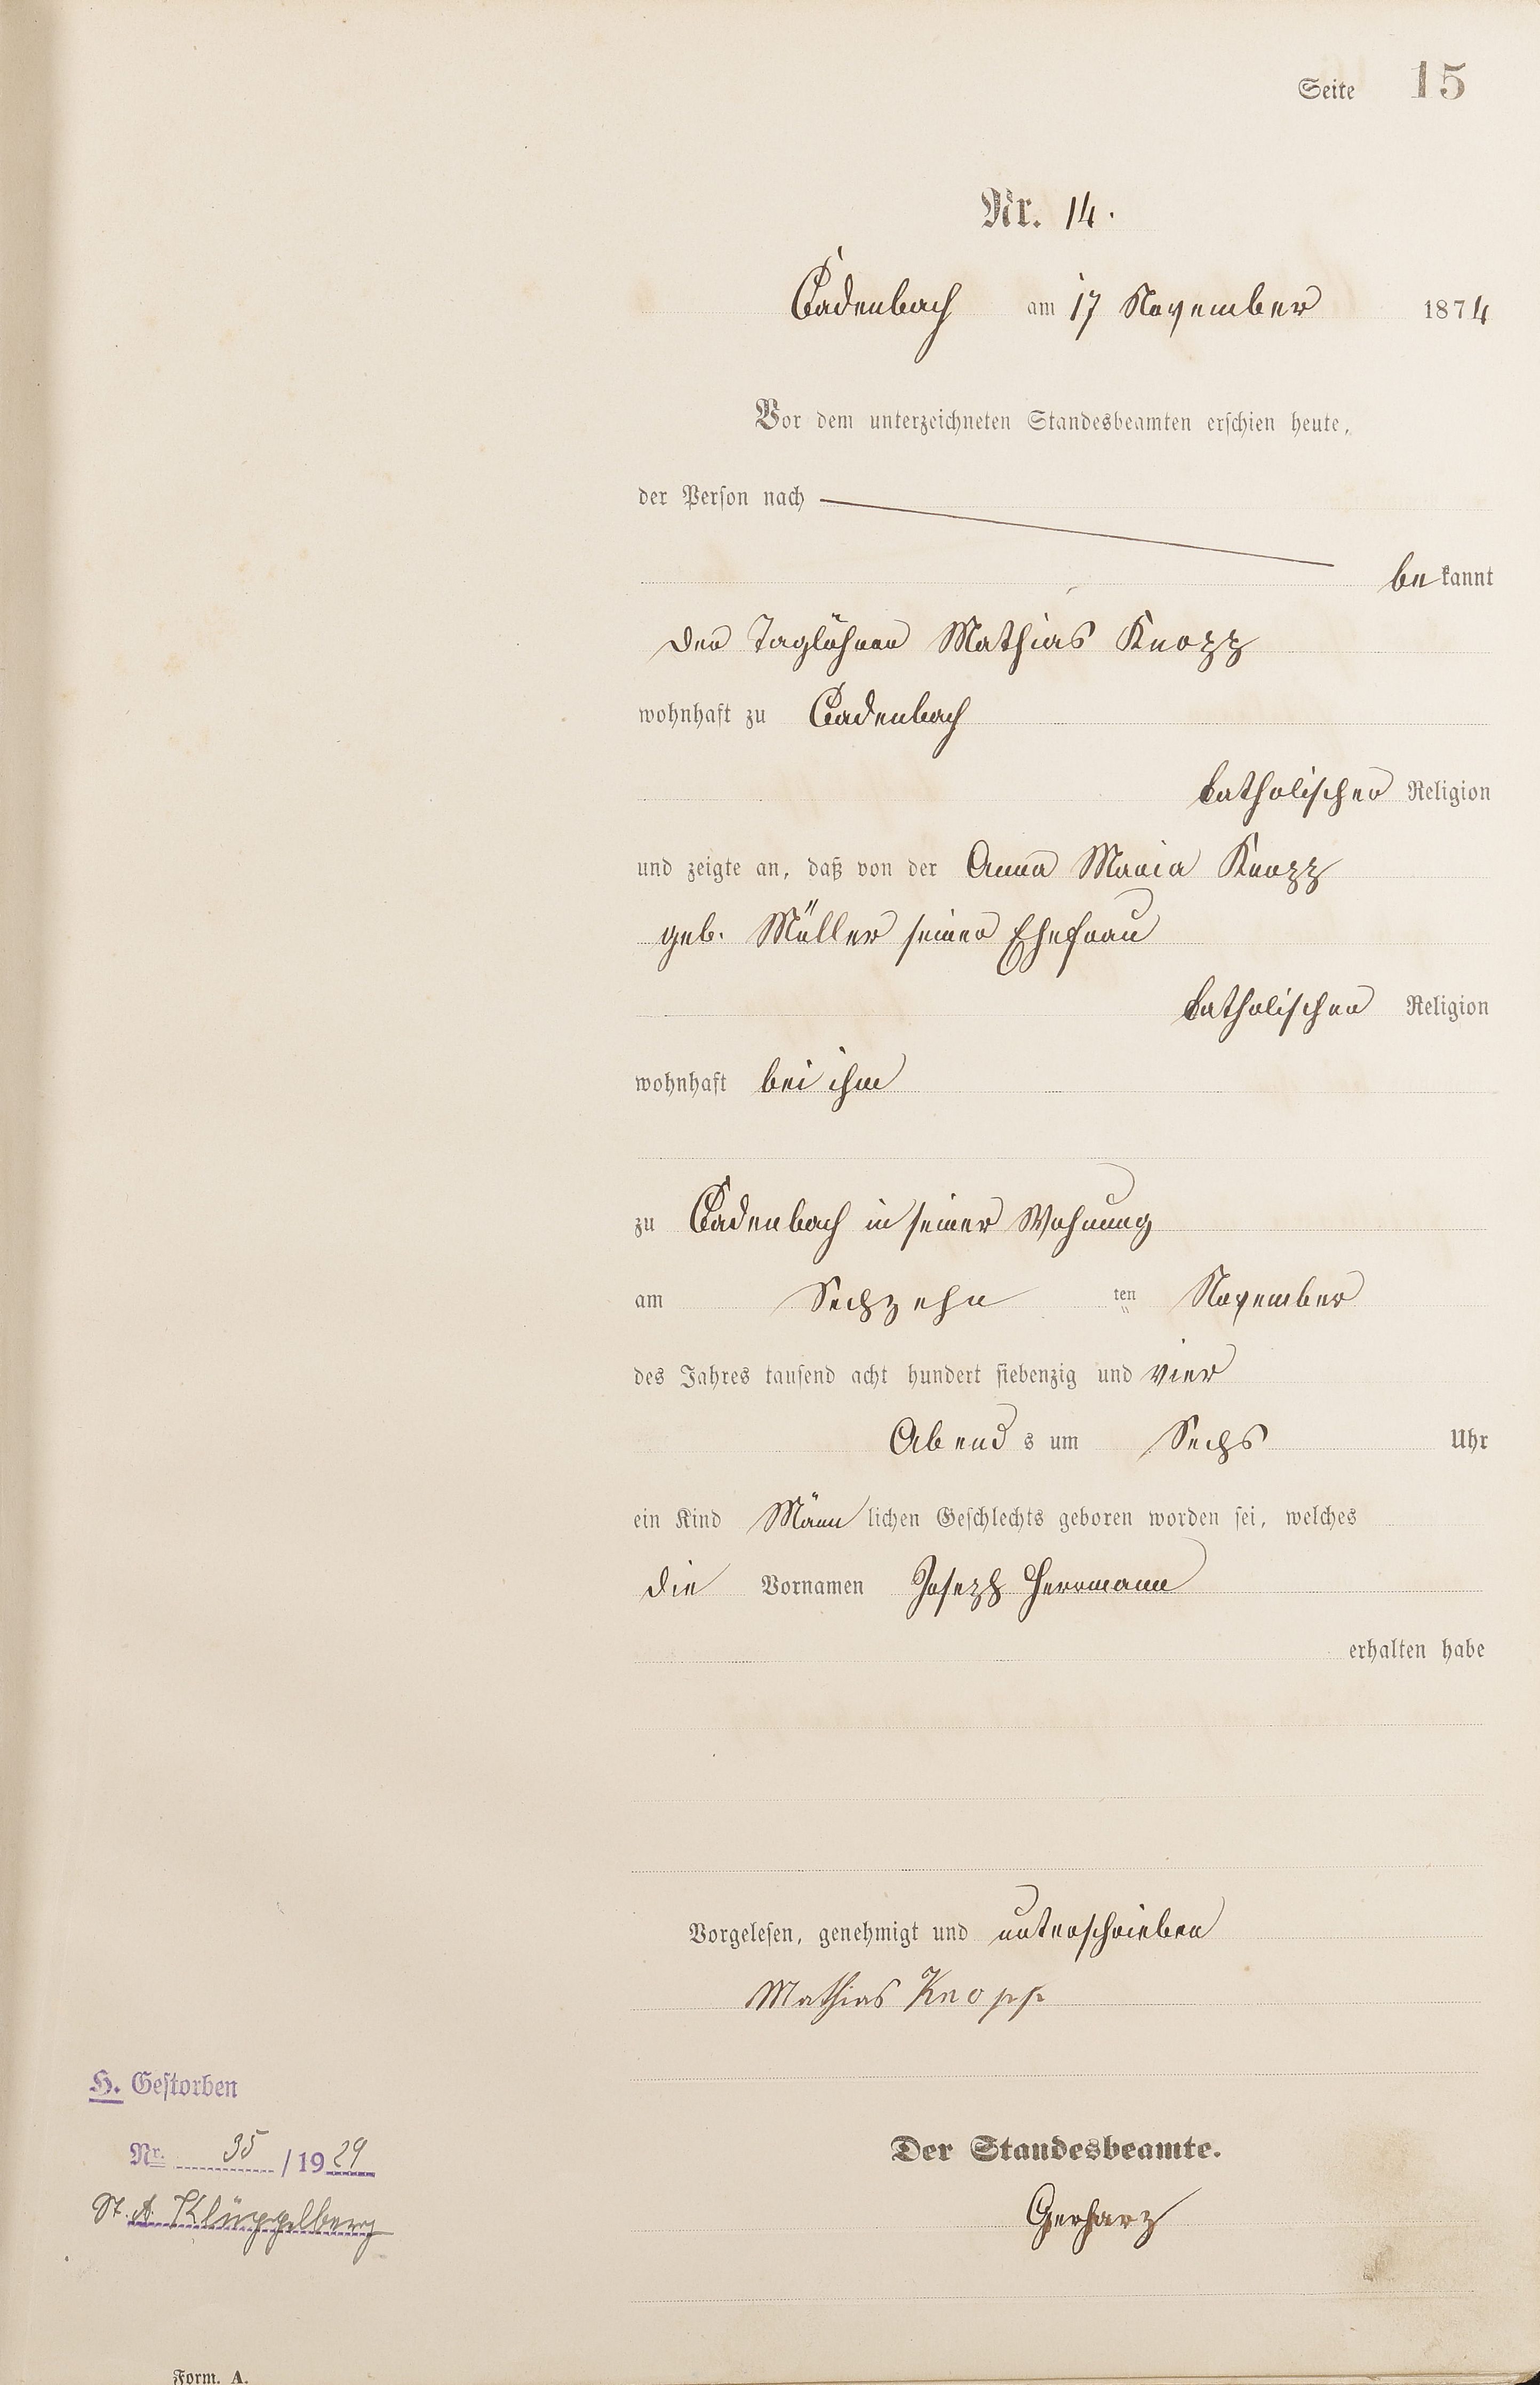 Seite 15
Nr. 14.
Cadenbach am 17 November 1874
Vor dem unterzeichneten Standesbeamten erschien heute,
der Person nach
bekannt
der Taglöhner Mathias Knopp
wohnhaft zu Cadenbach
katholischer Religion
und zeigte an, daß von der Anna Maria Knopp
geb. Müller seiner Ehefrau
katholischer Religion
wohnhaft bei ihm
zu Cadenbach in seiner Wohnung
am Sechzehn ten November
des Jahres tausend acht hundert siebenzig und vier
Abends um Sechs Uhr
ein Kind Männlichen Geschlechts geboren worden sei, welches
die Vornamen Joseph Herrmann
erhalten habe
Vorgelesen, genehmigt und unterschrieben
Mathias Knopp
H. Gestorben
Nr. 35 /1929
St. A. Klüppelberg
Der Standesbeamte.
Gerharz
Form. A.